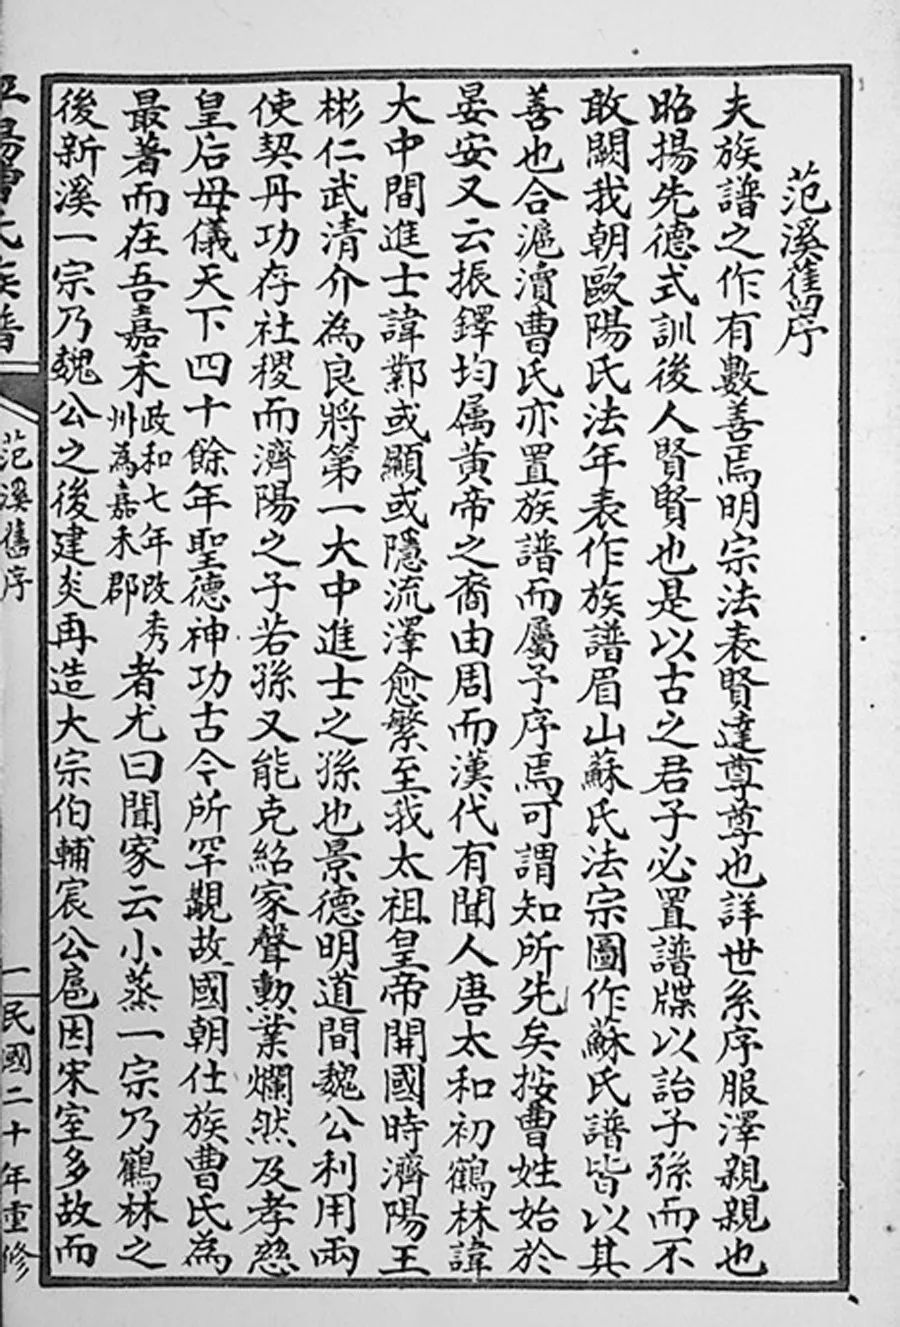 范溪舊序
夫族譜之作有數善焉明宗法表賢達尊尊也詳世系序服澤親親也
昭揚先德式訓後人賢賢也是以古之君子必置譜牒以詒子孫而不
敢闕我朝歐陽氏法年表作族譜眉山蘇氏法宗圖作蘇氏譜皆以其
善也合滬瀆曹氏亦置族譜而屬予序焉可謂知所先矣按曹姓始於
晏安又云振鐸均属黄帝之裔由周而漢代有聞人唐太和初鶴林諱
大中間進士諱鄴或顯或隱流澤愈繁至我太祖皇帝開國時濟陽王
彬仁武清介為良將第一大中進士之孫也景德明道間魏公利用兩
使契丹功存社稷而濟陽之子若孫又能克紹家聲勲業爛然及孝慈
皇后母儀天下四十餘年聖德神功古今所罕覯故國朝仕族曹氏為
最著而在吾嘉禾政和七年改秀州為嘉禾郡者尤曰聞家云小蒸一宗乃鶴林之
後新溪一宗乃魏公之後建炎再造大宗伯輔宸公扈因宋室多故而
平陽曹氏族譜
范溪舊序
一
民國二十年重修